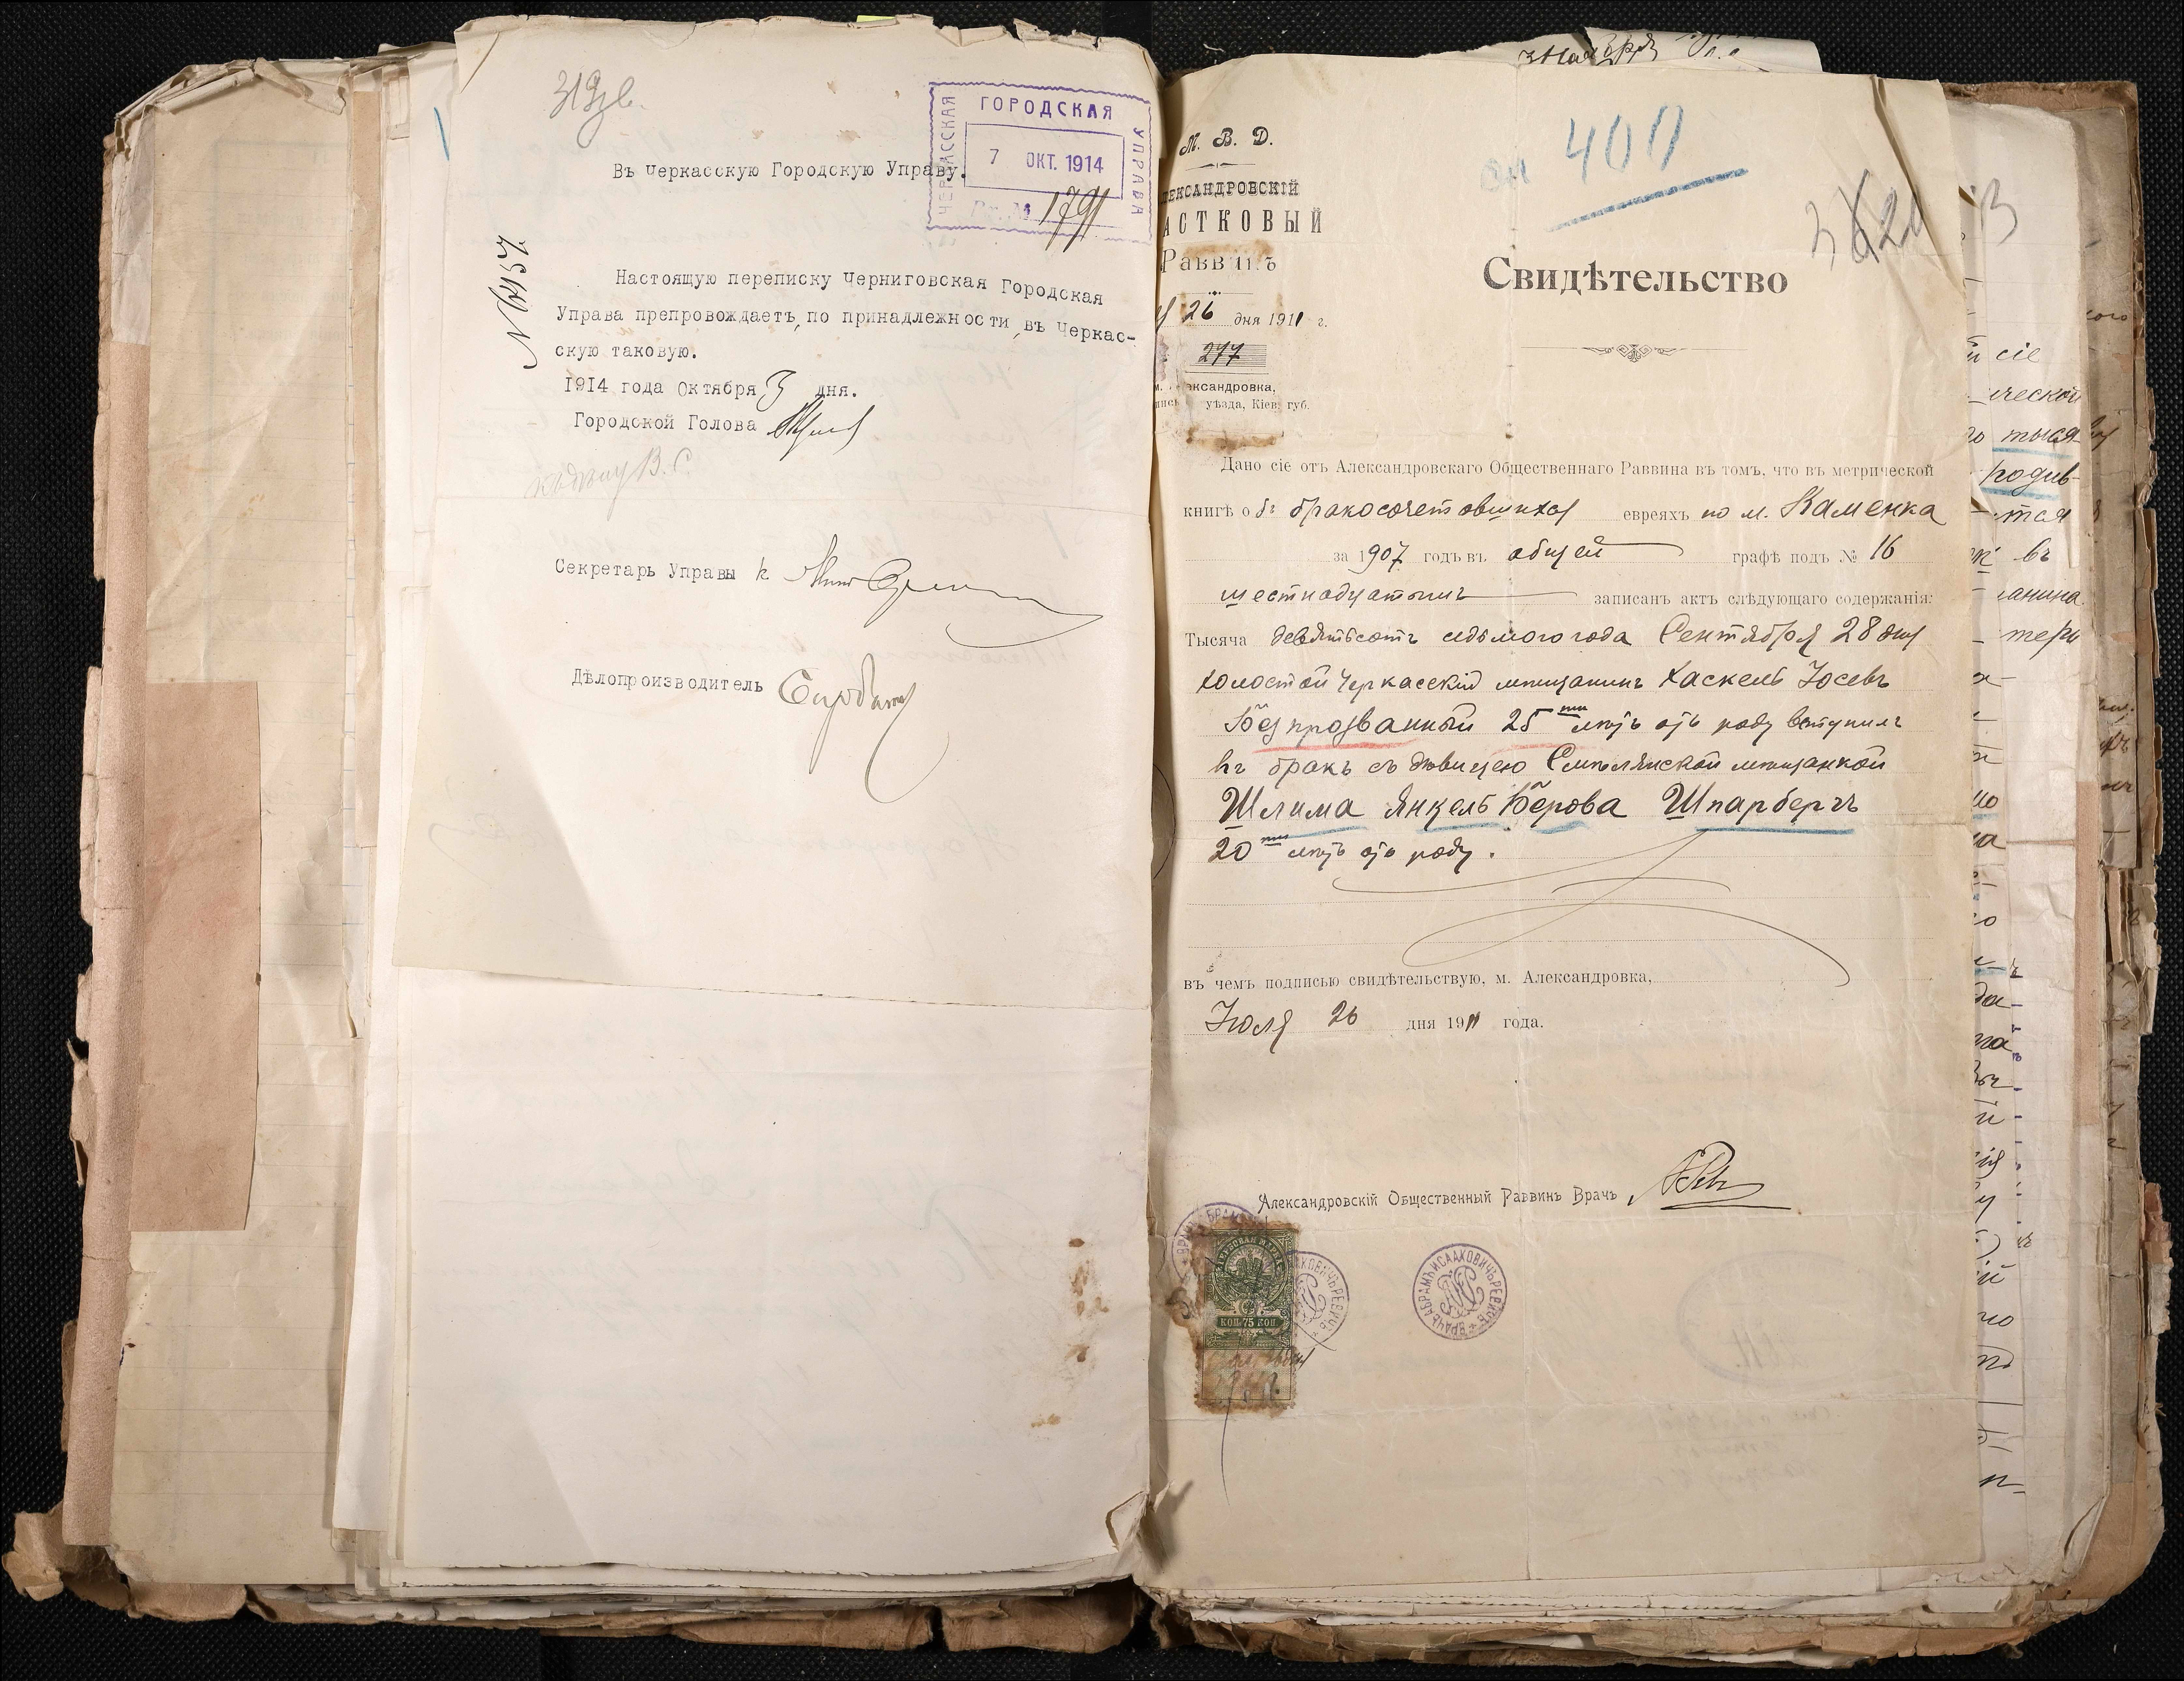 ЧЕРКАССКАЯ ГОРОДСКАЯ УПРАВА
7 ОКТ. 1914
Вх. № 1791
Въ Черкасскую Городскую Управу.
Настоящую переписку Черниговская Городская
Управа препровождаетъ, по принадлежности, въ Черкас-
скую таковую.
1914 года Октября 3 дня.
Городской Голова
Секретарь Управы
Дѣлопроизводитель
М. В. Д.
ЛЕКСАНДРОВСКІЙ
АСТКОВЫЙ
Раввинъ
26 дня 1911 г.
277
м. Александровка,
уѣзда, Кіев. губ.
400
Свидѣтельство
Дано сіе отъ Александровскаго Общественнаго Раввина въ томъ, что въ метрической
книгѣ о бракосочетавшихся евреяхъ по м. Каменка
за 1907 годъ въ общей графѣ подъ № 16
шестнадцатымъ записанъ актъ слѣдующаго содержанія:
Тысяча девятьсотъ седьмого года Сентября 28 дня
холостой Черкасскій мѣщанинъ Хаскель Іосевъ
Безпрозванный 25ти лѣтъ отъ роду вступилъ
въ бракъ съ дѣвицею Смѣлянской мѣщанкой
Шлима Янкель Берова Шпарбергъ
20ти лѣтъ отъ роду.
въ чемъ подписью свидѣтельствую, м. Александровка,
Іюля 26 дня 1911 года.
Александровскій Общественный Раввинъ Врачъ
КОП. 75 КОП.
ВРАЧЪ АБРАМЪ ИСААКОВИЧЪ РЕВИЧЪ